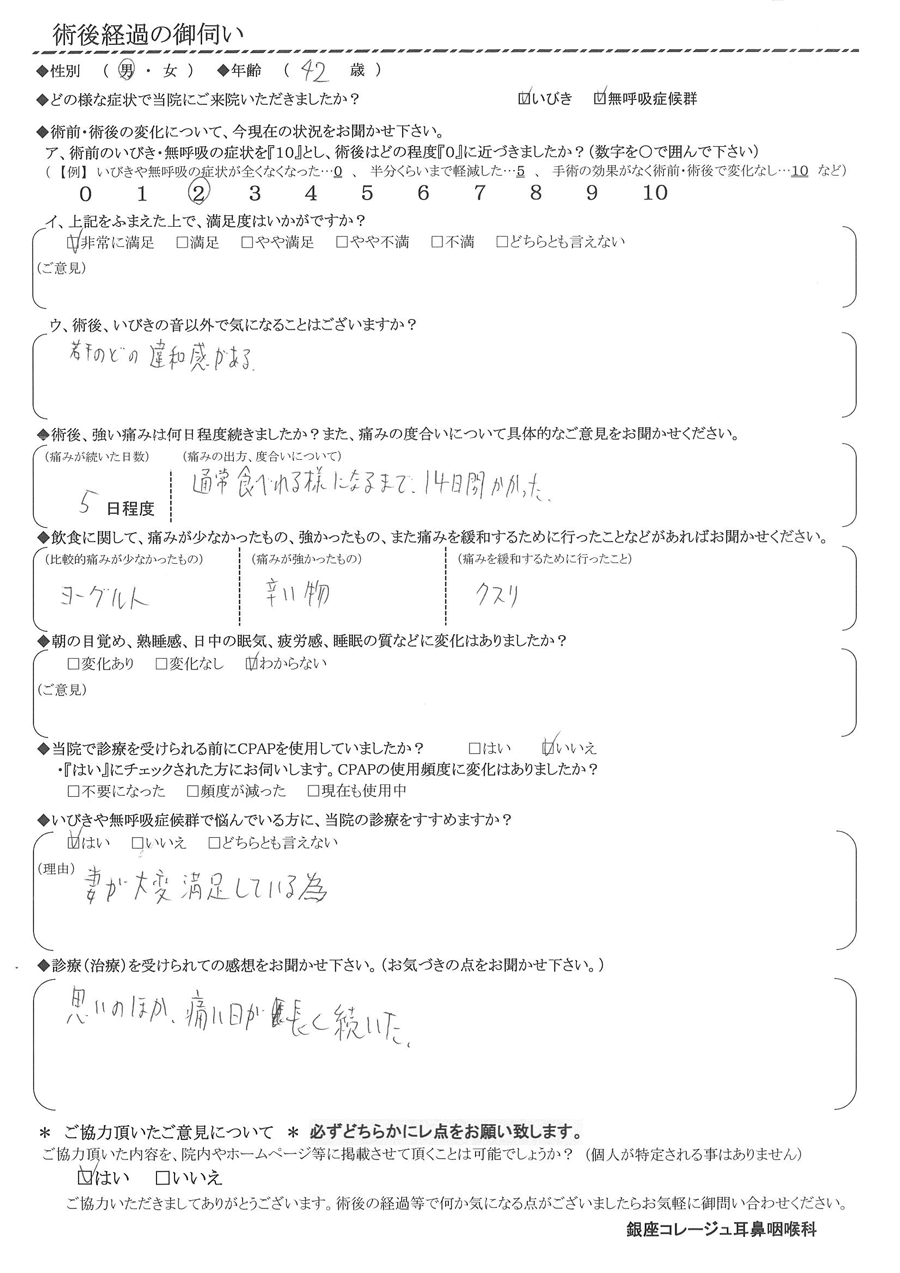 術後経過の御伺い
◆性別 (男・女) ◆年齢 (42 歳)
◆どの様な症状で当院にご来院いただきましたか? ☑いびき ☑無呼吸症候群
◆術前・術後の変化について、今現在の状況をお聞かせ下さい。
ア、術前のいびき・無呼吸の症状を『10』とし、術後はどの程度『0』に近づきましたか?(数字を〇で囲んで下さい)
(【例】いびきや無呼吸の症状が全くなくなった…0 、 半分くらいまで軽減した…5 、 手術の効果がなく術前・術後で変化なし…10 など)
0 1 2 3 4 5 6 7 8 9 10
イ、上記をふまえた上で、満足度はいかがですか?
☑非常に満足 □満足 □やや満足 □やや不満 □不満 □どちらとも言えない
(ご意見)
ウ、術後、いびきの音以外で気になることはございますか?
若干のどの違和感がある.
◆術後、強い痛みは何日程度続きましたか?また、痛みの度合いについて具体的なご意見をお聞かせください。
(痛みが続いた日数) (痛みの出方、度合いについて)
5 日程度 通常食べれる様になるまで、14日間かかった.
◆飲食に関して、痛みが少なかったもの、強かったもの、また痛みを緩和するために行ったことなどがあればお聞かせください。
(比較的痛みが少なかったもの) (痛みが強かったもの) (痛みを緩和するために行ったこと)
ヨーグルト 辛い物 クスリ
◆朝の目覚め、熟睡感、日中の眠気、疲労感、睡眠の質などに変化はありましたか?
□変化あり □変化なし ☑わからない
(ご意見)
◆当院で診療を受けられる前にCPAPを使用していましたか? □はい ☑いいえ
・『はい』にチェックされた方にお伺いします。CPAPの使用頻度に変化はありましたか?
□不要になった □頻度が減った □現在も使用中
◆いびきや無呼吸症候群で悩んでいる方に、当院の診療をすすめますか?
☑はい □いいえ □どちらとも言えない
(理由) 妻が大変満足している為
◆診療(治療)を受けられての感想をお聞かせ下さい。(お気づきの点をお聞かせ下さい。)
思いのほか、痛い日が長く続いた.
＊ ご協力頂いたご意見について ＊ 必ずどちらかにレ点をお願い致します。
ご協力頂いた内容を、院内やホームページ等に掲載させて頂くことは可能でしょうか? (個人が特定される事はありません)
☑はい □いいえ
ご協力いただきましてありがとうございます。術後の経過等で何か気になる点がございましたらお気軽に御問い合わせください。
銀座コレージュ耳鼻咽喉科